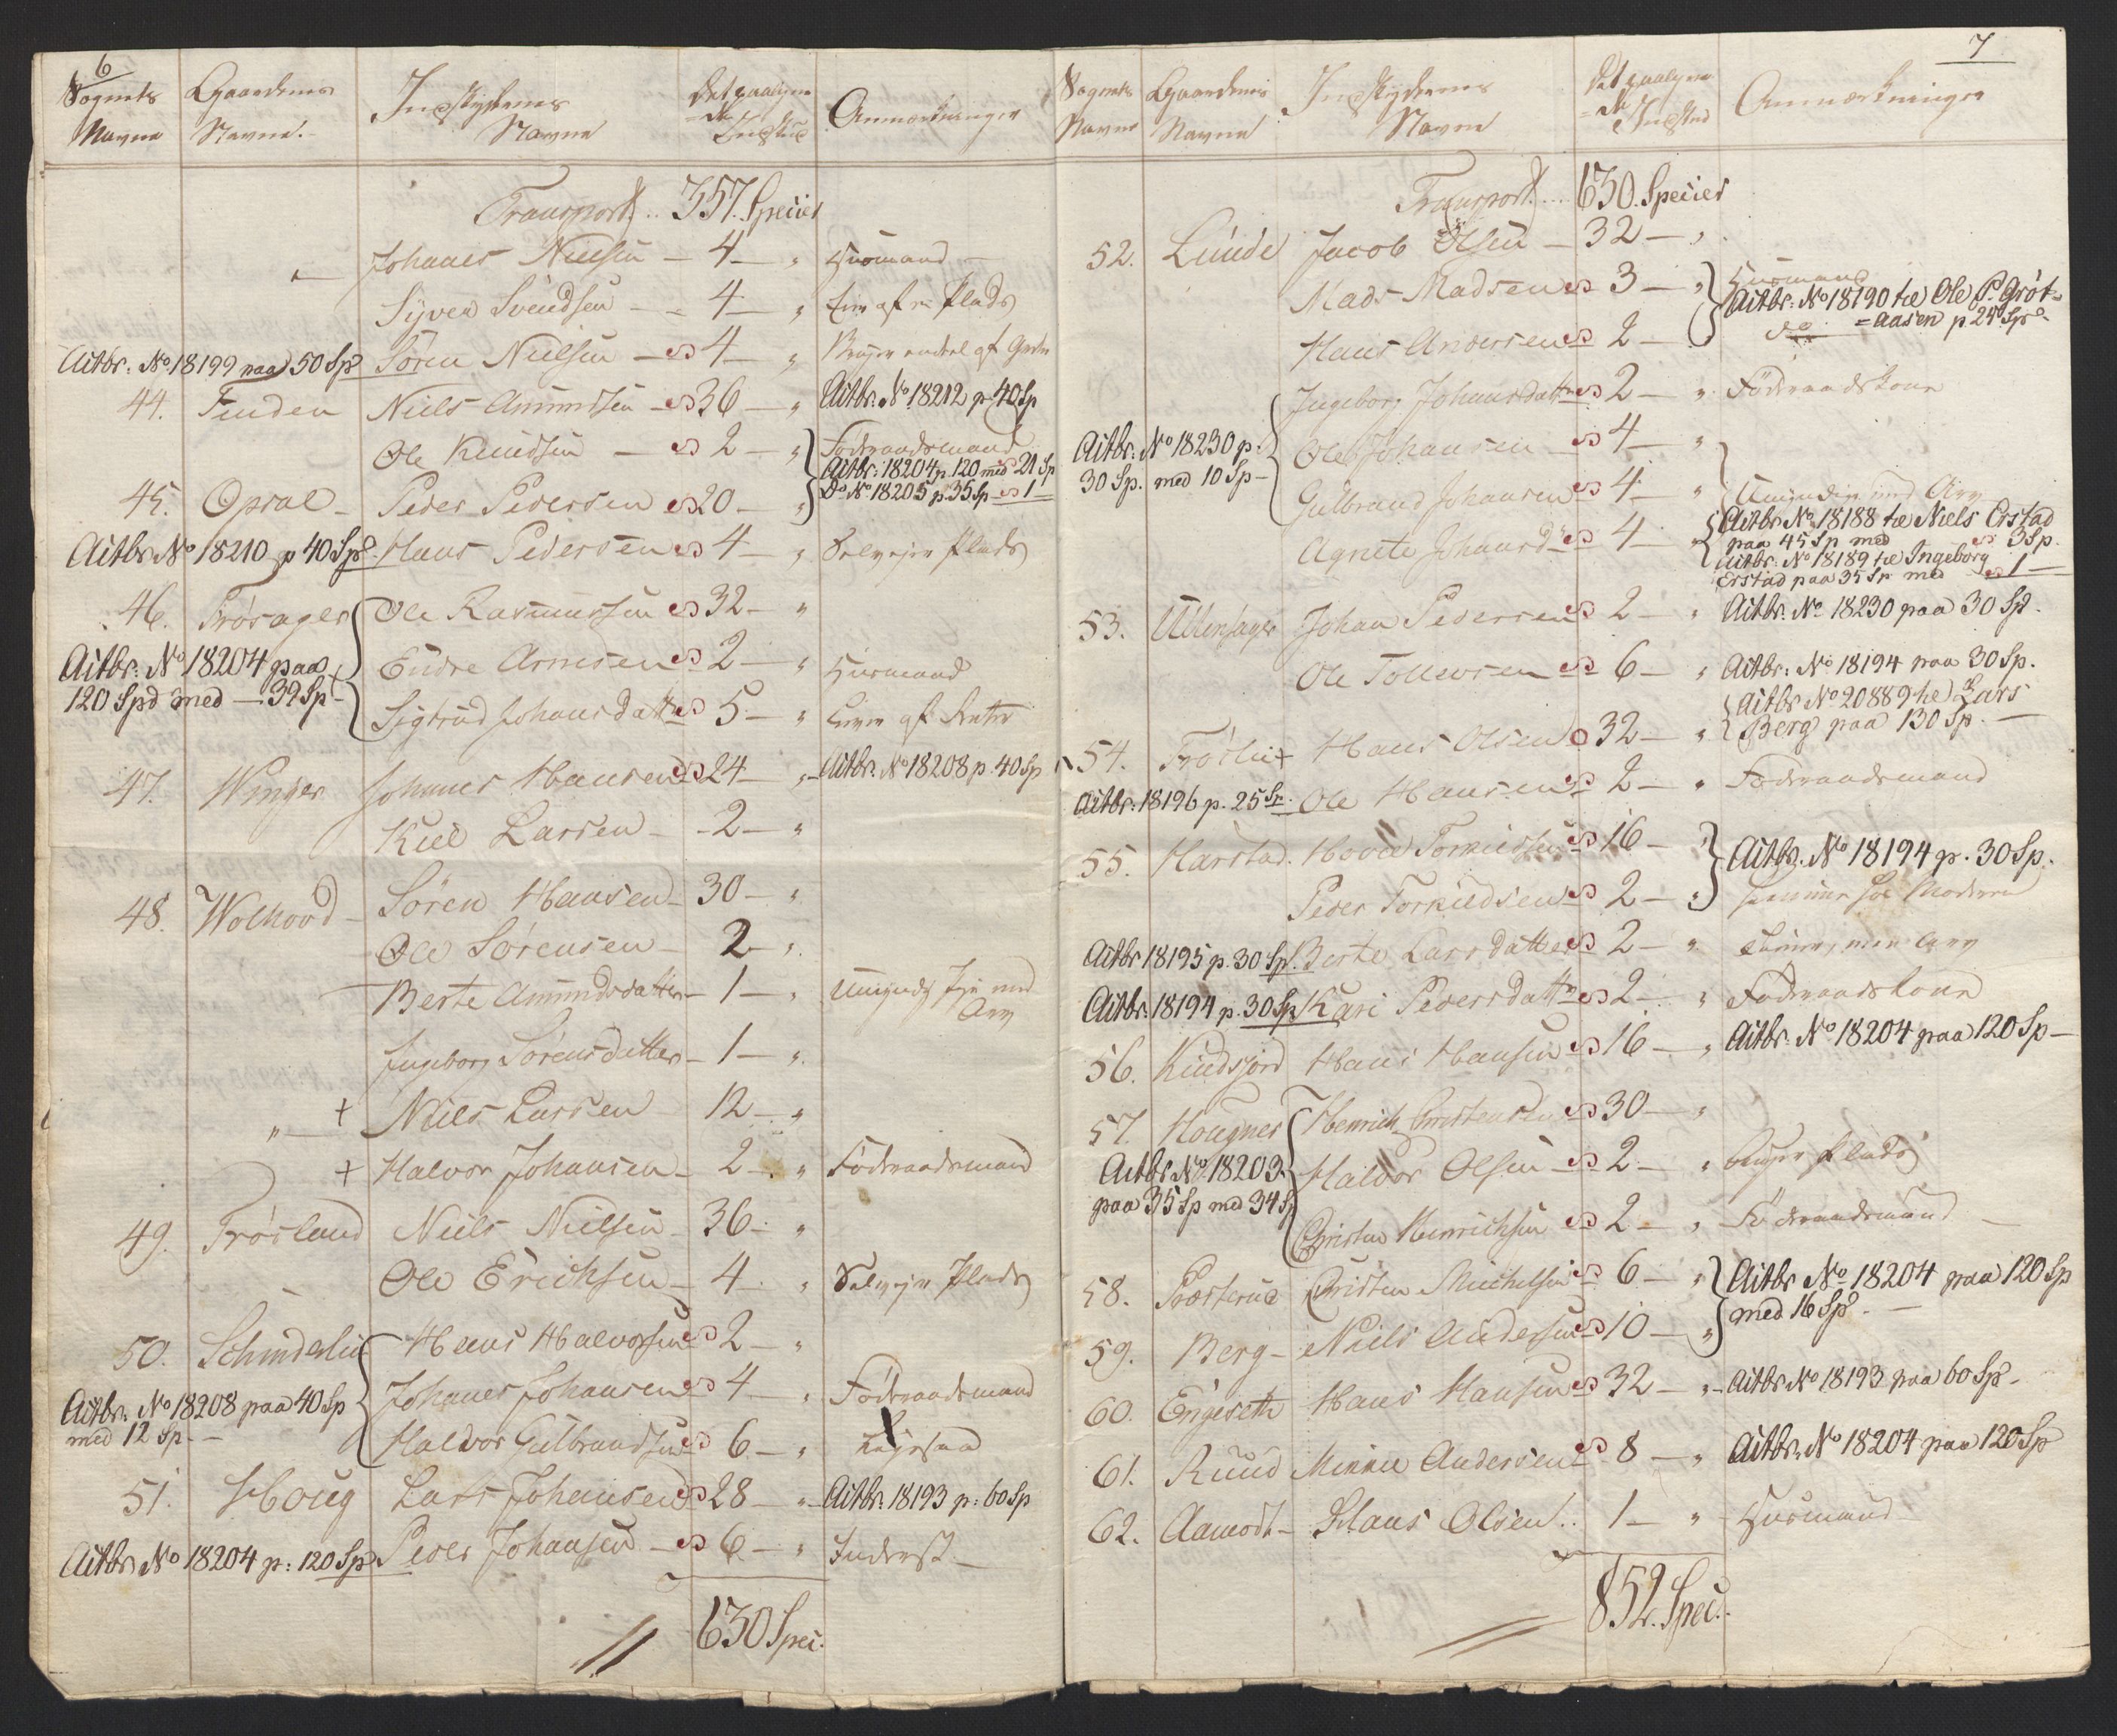 6
Sognets Navne
Gaardenes Navne.
Indskydernes Navne
Det paalignede Indskud
Anmærkninger
Transport .. 357. Species
Johanes Nielsen - 4 - " Huusmand -
Syver Svendsen - - 4 - "
Aitbr: No 18199 paa 50 Sp Sören Nielsen - 4 - "
44. Finden Niels Amundsen - 36 - " Aitbr. No 18212 p 40 Sp
Ole Knudsen - 2 - " Föderaadsmand
Aitbr: 18204 p. 120 med 21 Sp
Do No 18205 p. 35 Sp - 1 -
45. Opsal - Peder Pedersen 20 - "
Aitbr No 18210 p 40 Sp Hans Pedersen 4 - " Selvejer Plads
46. Frösager Ole Rasmussen 32 - "
Aitbr: No 18204 paa 120 Spd med - 39 Sp -
Endre Arnesen 2 - " Huusmand
Sigtrud Johansdatter 5 - "
47. Winger Johannes Hansen 24 - " - Aitbr. No 18208 p. 40 Sp
Kield Larsen - 2 - "
48. Wolhovd - Sören Hansen - 30 - "
Ole Sörensen - 2 - "
Berte Amundsdatter - 1 - "
Ingeborg Sörensdatter - 1 - "
" - + Niels Larsen 12 - "
+ Halvor Johansen - 2 - " Föderaadsmand
49. Frösland Niels Nielsen - 36 - "
Ole Erichsen - 4 - " Selvejer Plads
50. Schinderlie Hans Halvorsen 2 - "
Aitbr. No 18208 paa 40 Sp med 12 Sp. -
Johanes Johansen 4 - " Föderaadsmand
Halvor Gulbrandsen 6 - "
51. Houg Lars Johansen 28 - " - Aitbr. 18193 p: 60 Sp
Aitbr No 18204 p: 120 Sp. Peder Johansen - 6 - " Inderst -
630 Spec.
7
Sognets Navne
Gaardenes Navne
Indskydernes Navne
Det paalignede Indskud
Anmærkninger
Transport ... 630. Species
52. Lunde Jacob Olsen - 32 - "
Mads Madsen 3 - " Huusmand
Aitbr: No 18190 til Ole P. Gröt=
=aasen p. 24 Sp.
Hans Andersen 2 - do
Ingeborg Johansdatter 2 - " Föderaadskone
Aitbr: No 18230 p. 30 Sp. med 10 Sp -
Ole Johansen 4 - "
Gulbrand Johansen 4 - "
Agnete Johansd. 4 - "
Aitbr No 18188 til Niels Erstad
paa 45 Sp med 3 Sp.
Aitbr. No 18189 til Ingeborg
Erstad paa 35 Sp med 1 -
53. Ullensager Johan Pedersen 2 - " Aitbr. No 18230 paa 30 Sp.
Ole Tollevsen 6 - " Aitbr: No 18194 paa 30 Sp.
Aitbr No 20889 til Lars
Berg paa 130 Sp. -
54. Fröslie + Hans Olsen 32 - "
Aitbr: 18196 p. 25 Sp. Ole Hansen 2 - " Föderaadsmand
55. Harstad. Hovel Torkildsen 16 - " Aitbr. No 18194 p. 30 Sp.
Peder Torkildsen 2 - " hos Moderen
Aitbr 18195 p. 30 Sp. Berte Larsdatter 2 - "
Aitbr. 18194 p. 30 Sp Kari Pedersdatter 2 - " Föderaadskone
56. Kindsjord Hans Hansen 16 - " Aitbr. No 18204 paa 120 Sp -
57. Hougner Henrich Christensen 30 - "
Aitbr No 18203 paa 35 Sp med 34 Sp
Halvor Olsen 2 - " Plads
Christen Henrichsen 2 - " Föderaadsmand -
58. Præsterud Christen Michelsen 6 - " Aitbr No 18204 paa 120 Sp
med 16 Sp. -
59. Berg - Niels Andersen 10 - "
60. Engeseth Hans Hansen 32 - " - Aitbr No 18193 paa 60 Sp -
61. Ruud Mikkel Andersen 8 - " Aitbr. No 18204 paa 120 Sp
62. Aamodt - Claus Olsen .. 1 - " - Huusmand
852. Spec.